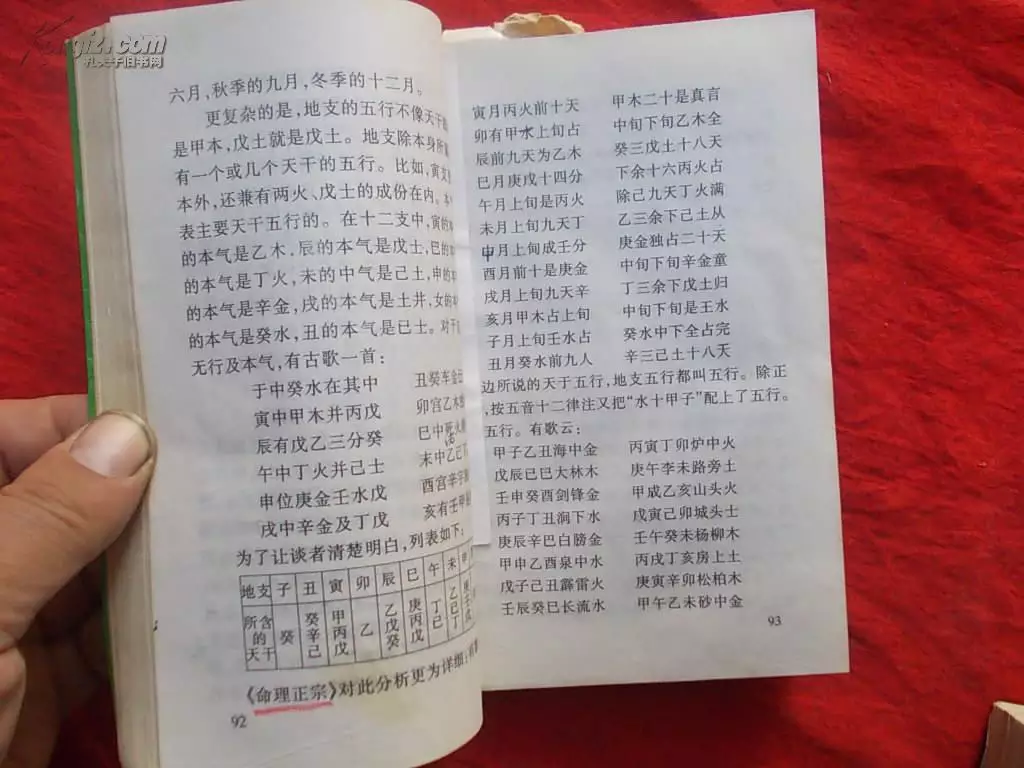 kongfz.com
孔夫子旧书网
六月,秋季的九月,冬季的十二月。
更复杂的是,地支的五行不像天干
是甲本,戊土就是戊土。地支除本身所
有一个或几个天干的五行。比如,寅
本外,还兼有两火、戊士的成份在内。
表主要天干五行的。在十二支中,寅的
的本气是乙木,辰的本气是戊士,巳的
的本气是丁火,未的中气是己土,申的
的本气是辛金,戌的本气是土井,女的
的本气是癸水,丑的本气是已土。对于
无行及本气,有古歌一首:
于中癸水在其中 丑癸车金
寅中甲木并丙戊 卯宫乙木
辰有戊乙三分癸 巳中
午中丁火并己士 末中乙己
申位庚金壬水戊 酉宫辛字
戌中辛金及丁戊 亥有壬甲
为了让谈者清楚明白,列表如下:
地支 子 丑 寅 卯 辰 巳 午 未
所含的天干 癸 癸辛己 甲丙戊 乙 乙戊癸 庚丙戊 丁己 乙已丁
《命理正宗》对此分析更为详细:
92
寅月丙火前十天 甲木二十是真言
卯有甲水上旬占 中旬下旬乙木全
辰前九天为乙木 癸三戊土十八天
巳月庚戊十四分 下余十六丙火占
午月上旬是丙火 除己九天丁火满
未月上旬九天丁 乙三余下己土从
申月上旬成壬分 庚金独占二十天
酉月前十是庚金 中旬下旬辛金童
戌月上旬九天辛 丁三余下戊土归
亥月甲木占上旬 中旬下旬是王水
子月上旬壬水占 癸水中下全占完
丑月癸水前九人 辛三己土十八天
边所说的天于五行,地支五行都叫五行。除正
,按五音十二律注又把“水十甲子”配上了五行。
五行。有歌云:
甲子乙丑海中金 丙寅丁卯炉中火
戊辰己巳大林木 庚午李未路旁土
壬申癸酉剑锋金 甲成乙亥山头火
丙子丁丑涧下水 戍寅己卯城头士
庚辰辛巴白膀金 壬午癸未杨柳木
甲申乙酉泉中水 丙戌丁亥房上土
戊子己丑霹雷火 庚寅辛卯松柏木
壬辰癸巳长流水 甲午乙未砂中金
93